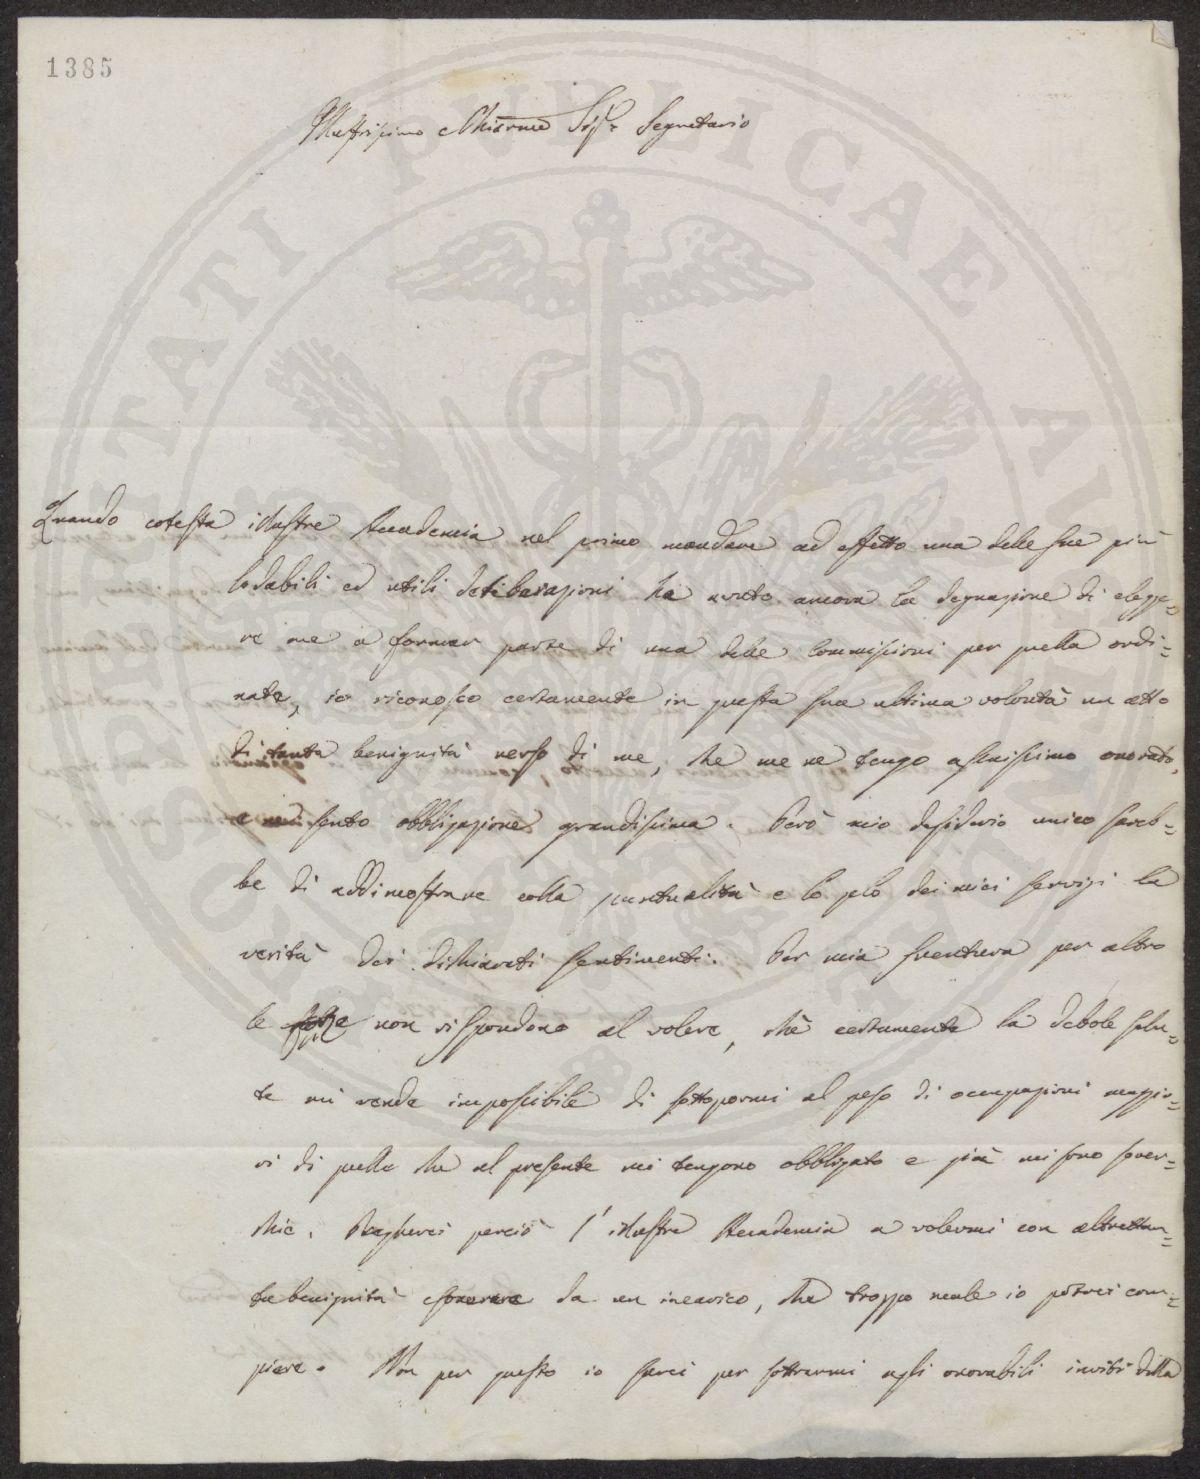 1385
Illustrissimo e Chiarmo Sigr Segretario
Quando cotesta illustre Accademia nel primo mandare ad effetto una delle sue più
lodabili ed utili deliberazioni ha avuto ancora la degnazione di elegge=
re me a formar parte di una delle Commissioni per quella ordi=
nate, io riconosco certamente in questa sua ultima volontà un atto
di tanta benignità verso di me, che me ne tengo assaissimo onorato,
e sento obbligazione grandissima. Però mio desiderio unico sareb=
be di addimostrare colla puntualità e lo zelo dei miei servigi la
verità dei dichiarati sentimenti. Per mia sventura per altro
le forze non rispondono al volere, chè certamente la debole salu=
te mi rende impossibile di sottopormi al peso di occupazioni maggio=
ri di quelle che al presente mi tengono obbligato e già mi sono sover=
chie. Pregherei perciò l'illustre Accademia a volermi con altrettan=
ta benignità esonerare da un incarico, che troppo male io potrei com=
piere. Non per questo io sarei per sottrarmi agli onorabili inviti della